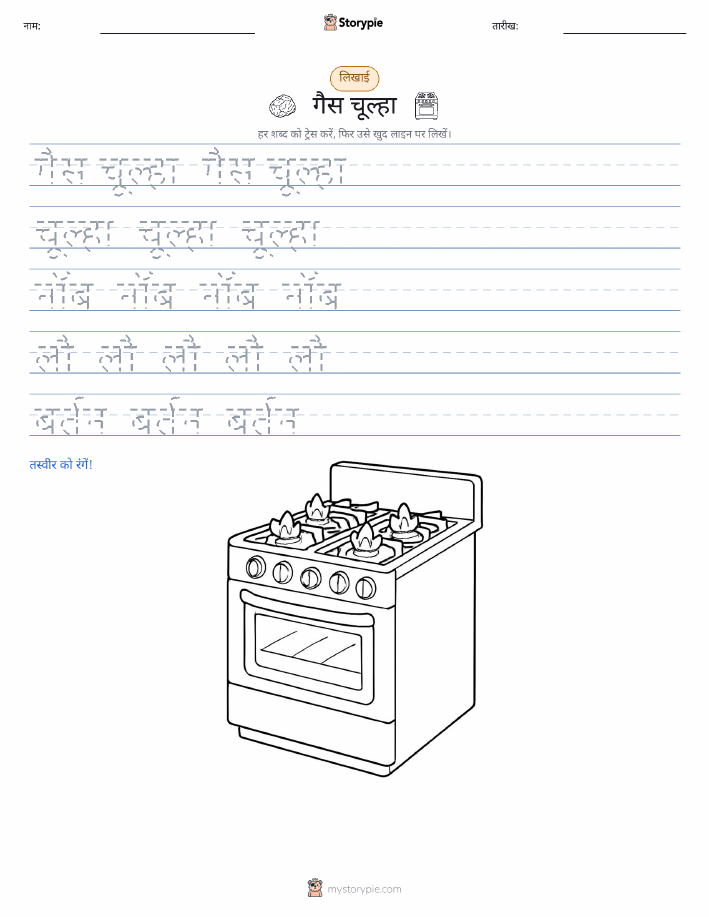 नाम:
Storypie
तारीख:
लिखाई
गैस चूल्हा
हर शब्द को ट्रेस करें, फिर उसे खुद लाइन पर लिखें।
गैस चूल्हा गैस चूल्हा
चूल्हा चूल्हा चूल्हा
नॉब नॉब नॉब नॉब
लौ लौ लौ लौ लौ
बर्तन बर्तन बर्तन
तस्वीर को रंगें!
mystorypie.com